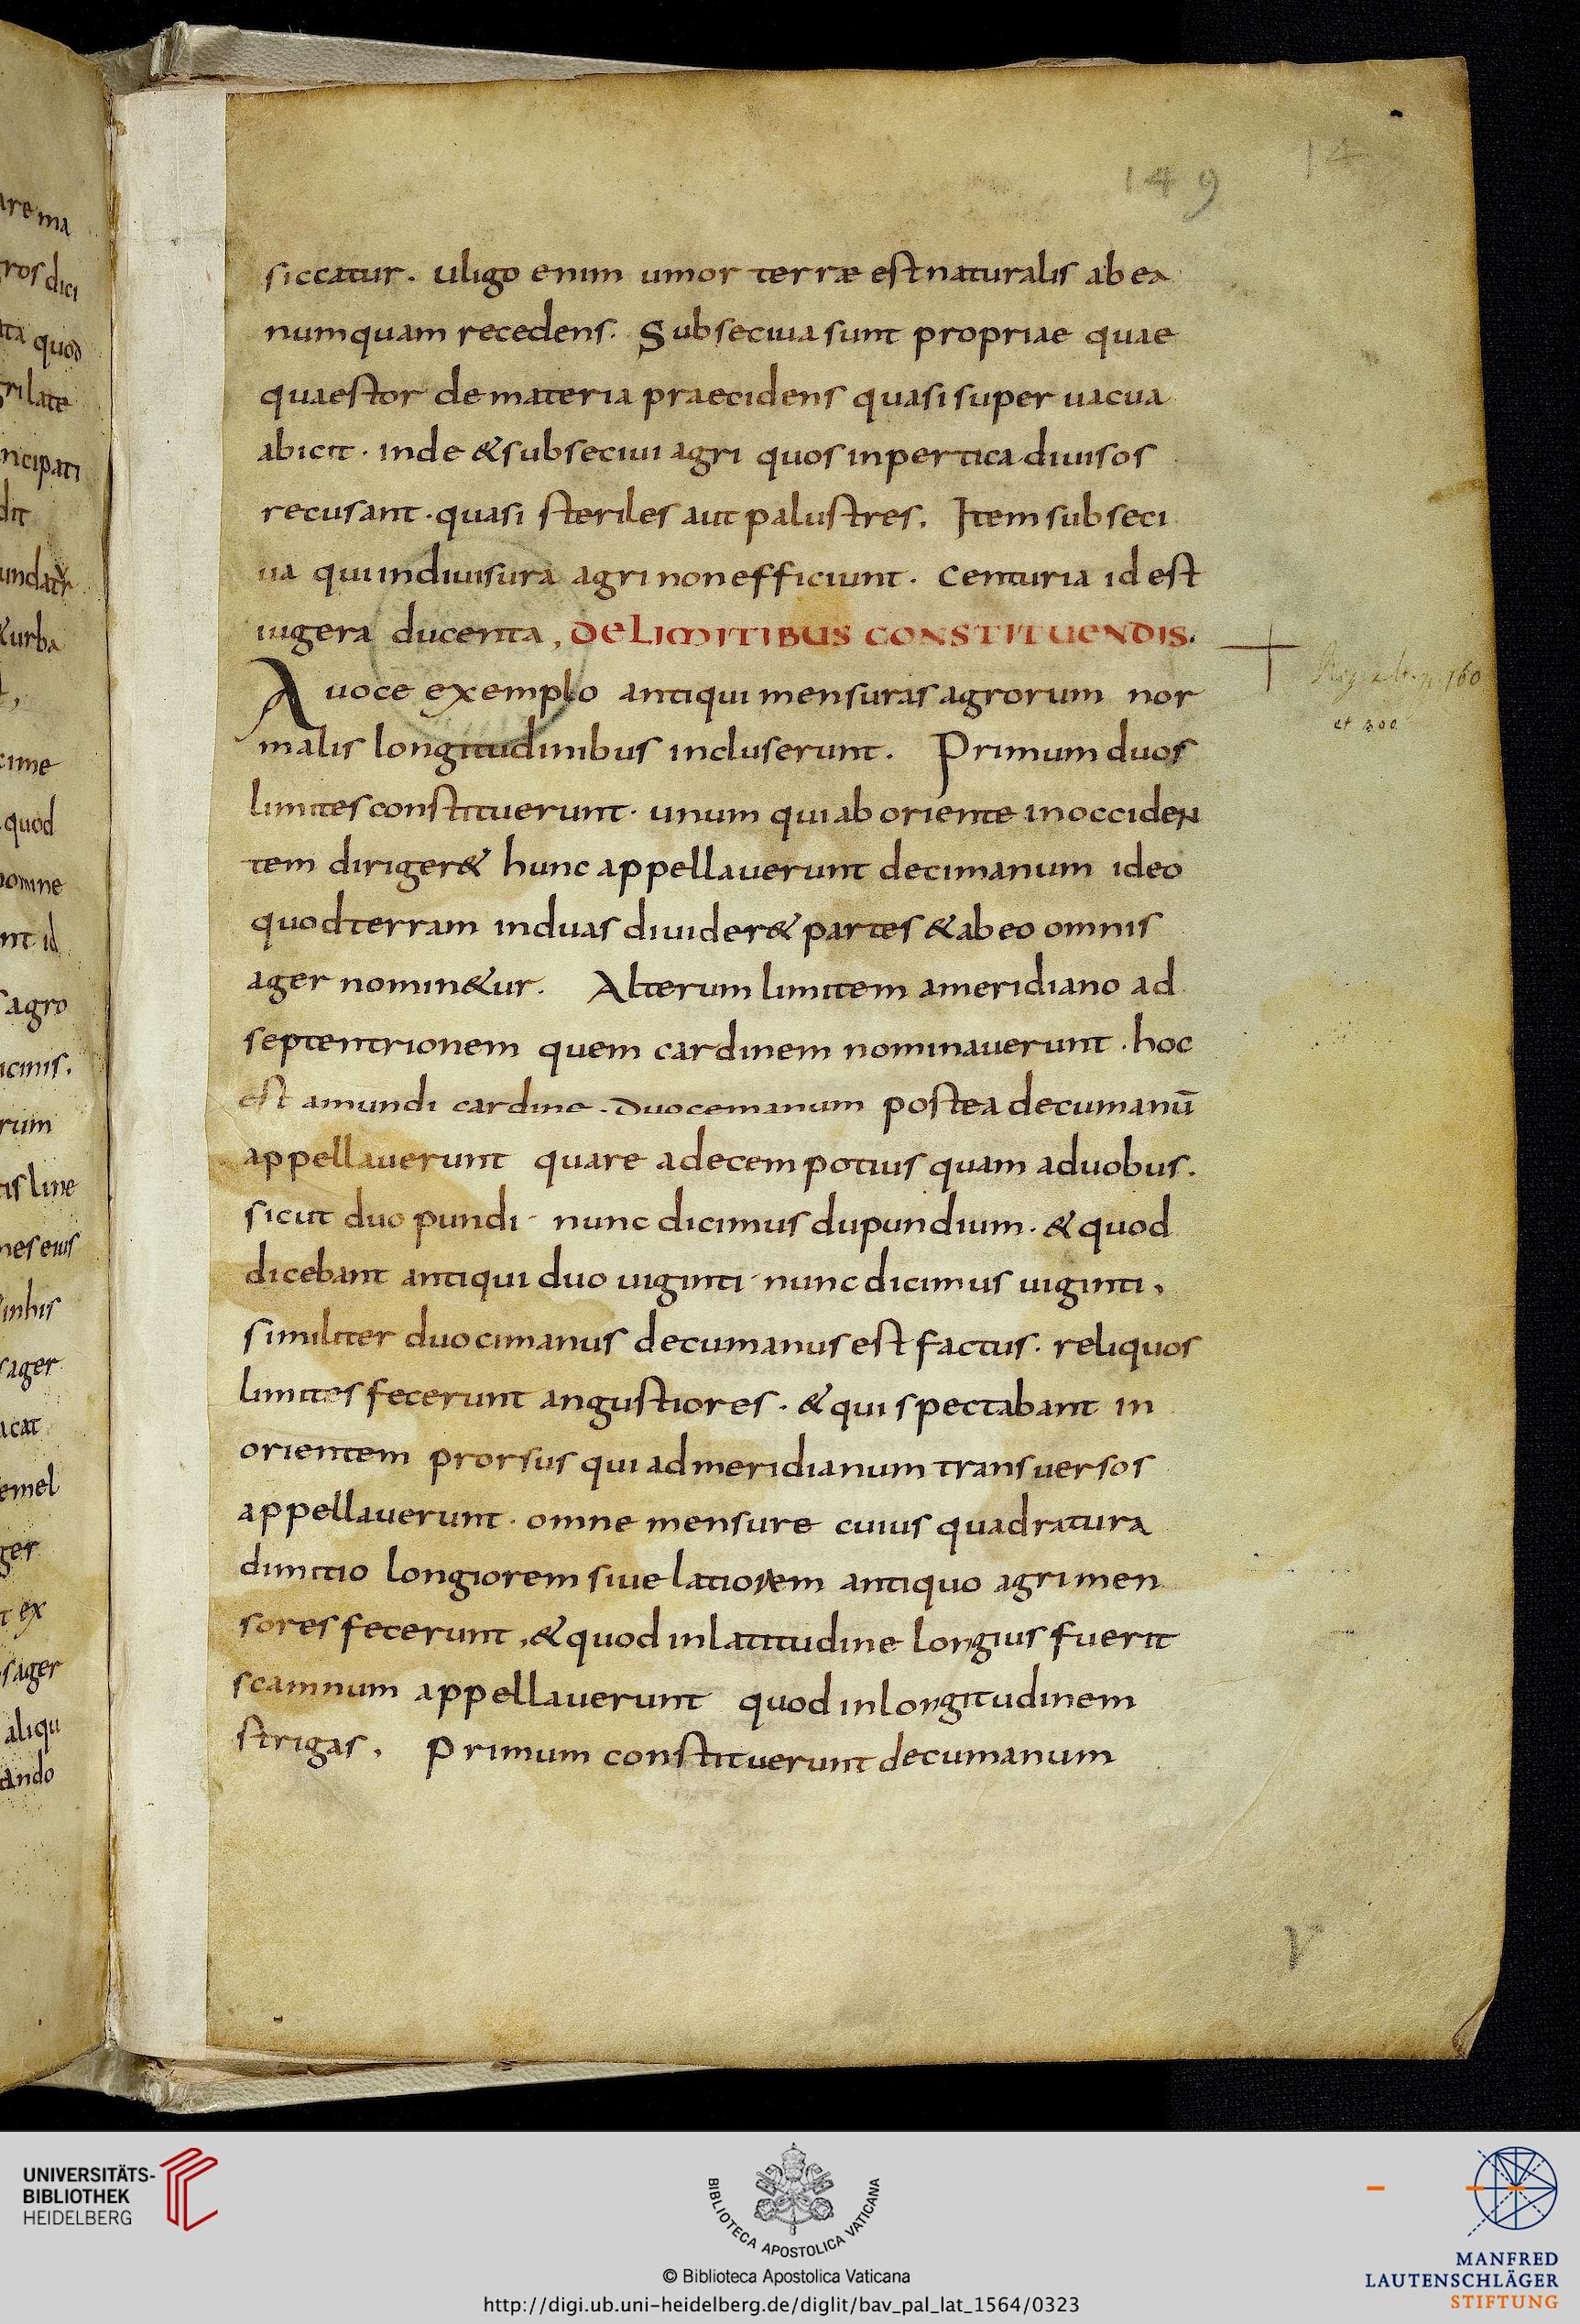 149
14
siccatur. uligo enim umor terræ est naturalis ab ea
numquam recedens. Subseciua sunt propriae quae
quaestor de materia praecidens quasi super uacua
abicit. inde & subseciui agri quos in pertica diuisos
recusant. quasi steriles aut palustres. Item subseci
ua qui in diuisura agri non efficiunt. Centuria id est
iugera ducenta, DE LIMITIBUS CONSTITUENDIS.
A uoce exemplo antiqui mensuras agrorum nor
malis longitudinibus incluserunt. Primum duos
limites constituerunt. unum qui ab oriente in occiden
tem diriger& hunc appellauerunt decimanum ideo
quod terram in duas diuider& partes & ab eo omnis
ager nomin&ur. Alterum limitem a meridiano ad
septentrionem quem cardinem nominauerunt. hoc
est a mundi cardine. duocemanum postea decumanū
appellauerunt quare a decem potius quam a duobus.
sicut duo pundi. nunc dicimus dupundium. & quod
dicebant antiqui duo uiginti. nunc dicimus uiginti,
similiter duocimanus decumanus est factus. reliquos
limites fecerunt angustiores. & qui spectabant in
orientem prorsus qui ad meridianum transuersos
appellauerunt. omne mensure cuius quadratura
dimitio longiorem siue latiorem antiquo agrimen
sores fecerunt, & quod in latitudine longius fuerit
scamnum appellauerunt quod in longitudinem
strigas. Primum constituerunt decumanum
p. 160
et 300
are ma
gros dici
ata quod
gri late
ncipati
dit
& urba
cime
quod
omne
nt id
s agro
icinis.
rum
is line
nes eius
in his
s ager
acat
emel
ger
t ex
s ager
aliqu
ando
UNIVERSITÄTS-
BIBLIOTHEK
HEIDELBERG
BIBLIOTECA APOSTOLICA VATICANA
© Biblioteca Apostolica Vaticana
http://digi.ub.uni-heidelberg.de/diglit/bav_pal_lat_1564/0323
MANFRED
LAUTENSCHLÄGER
STIFTUNG